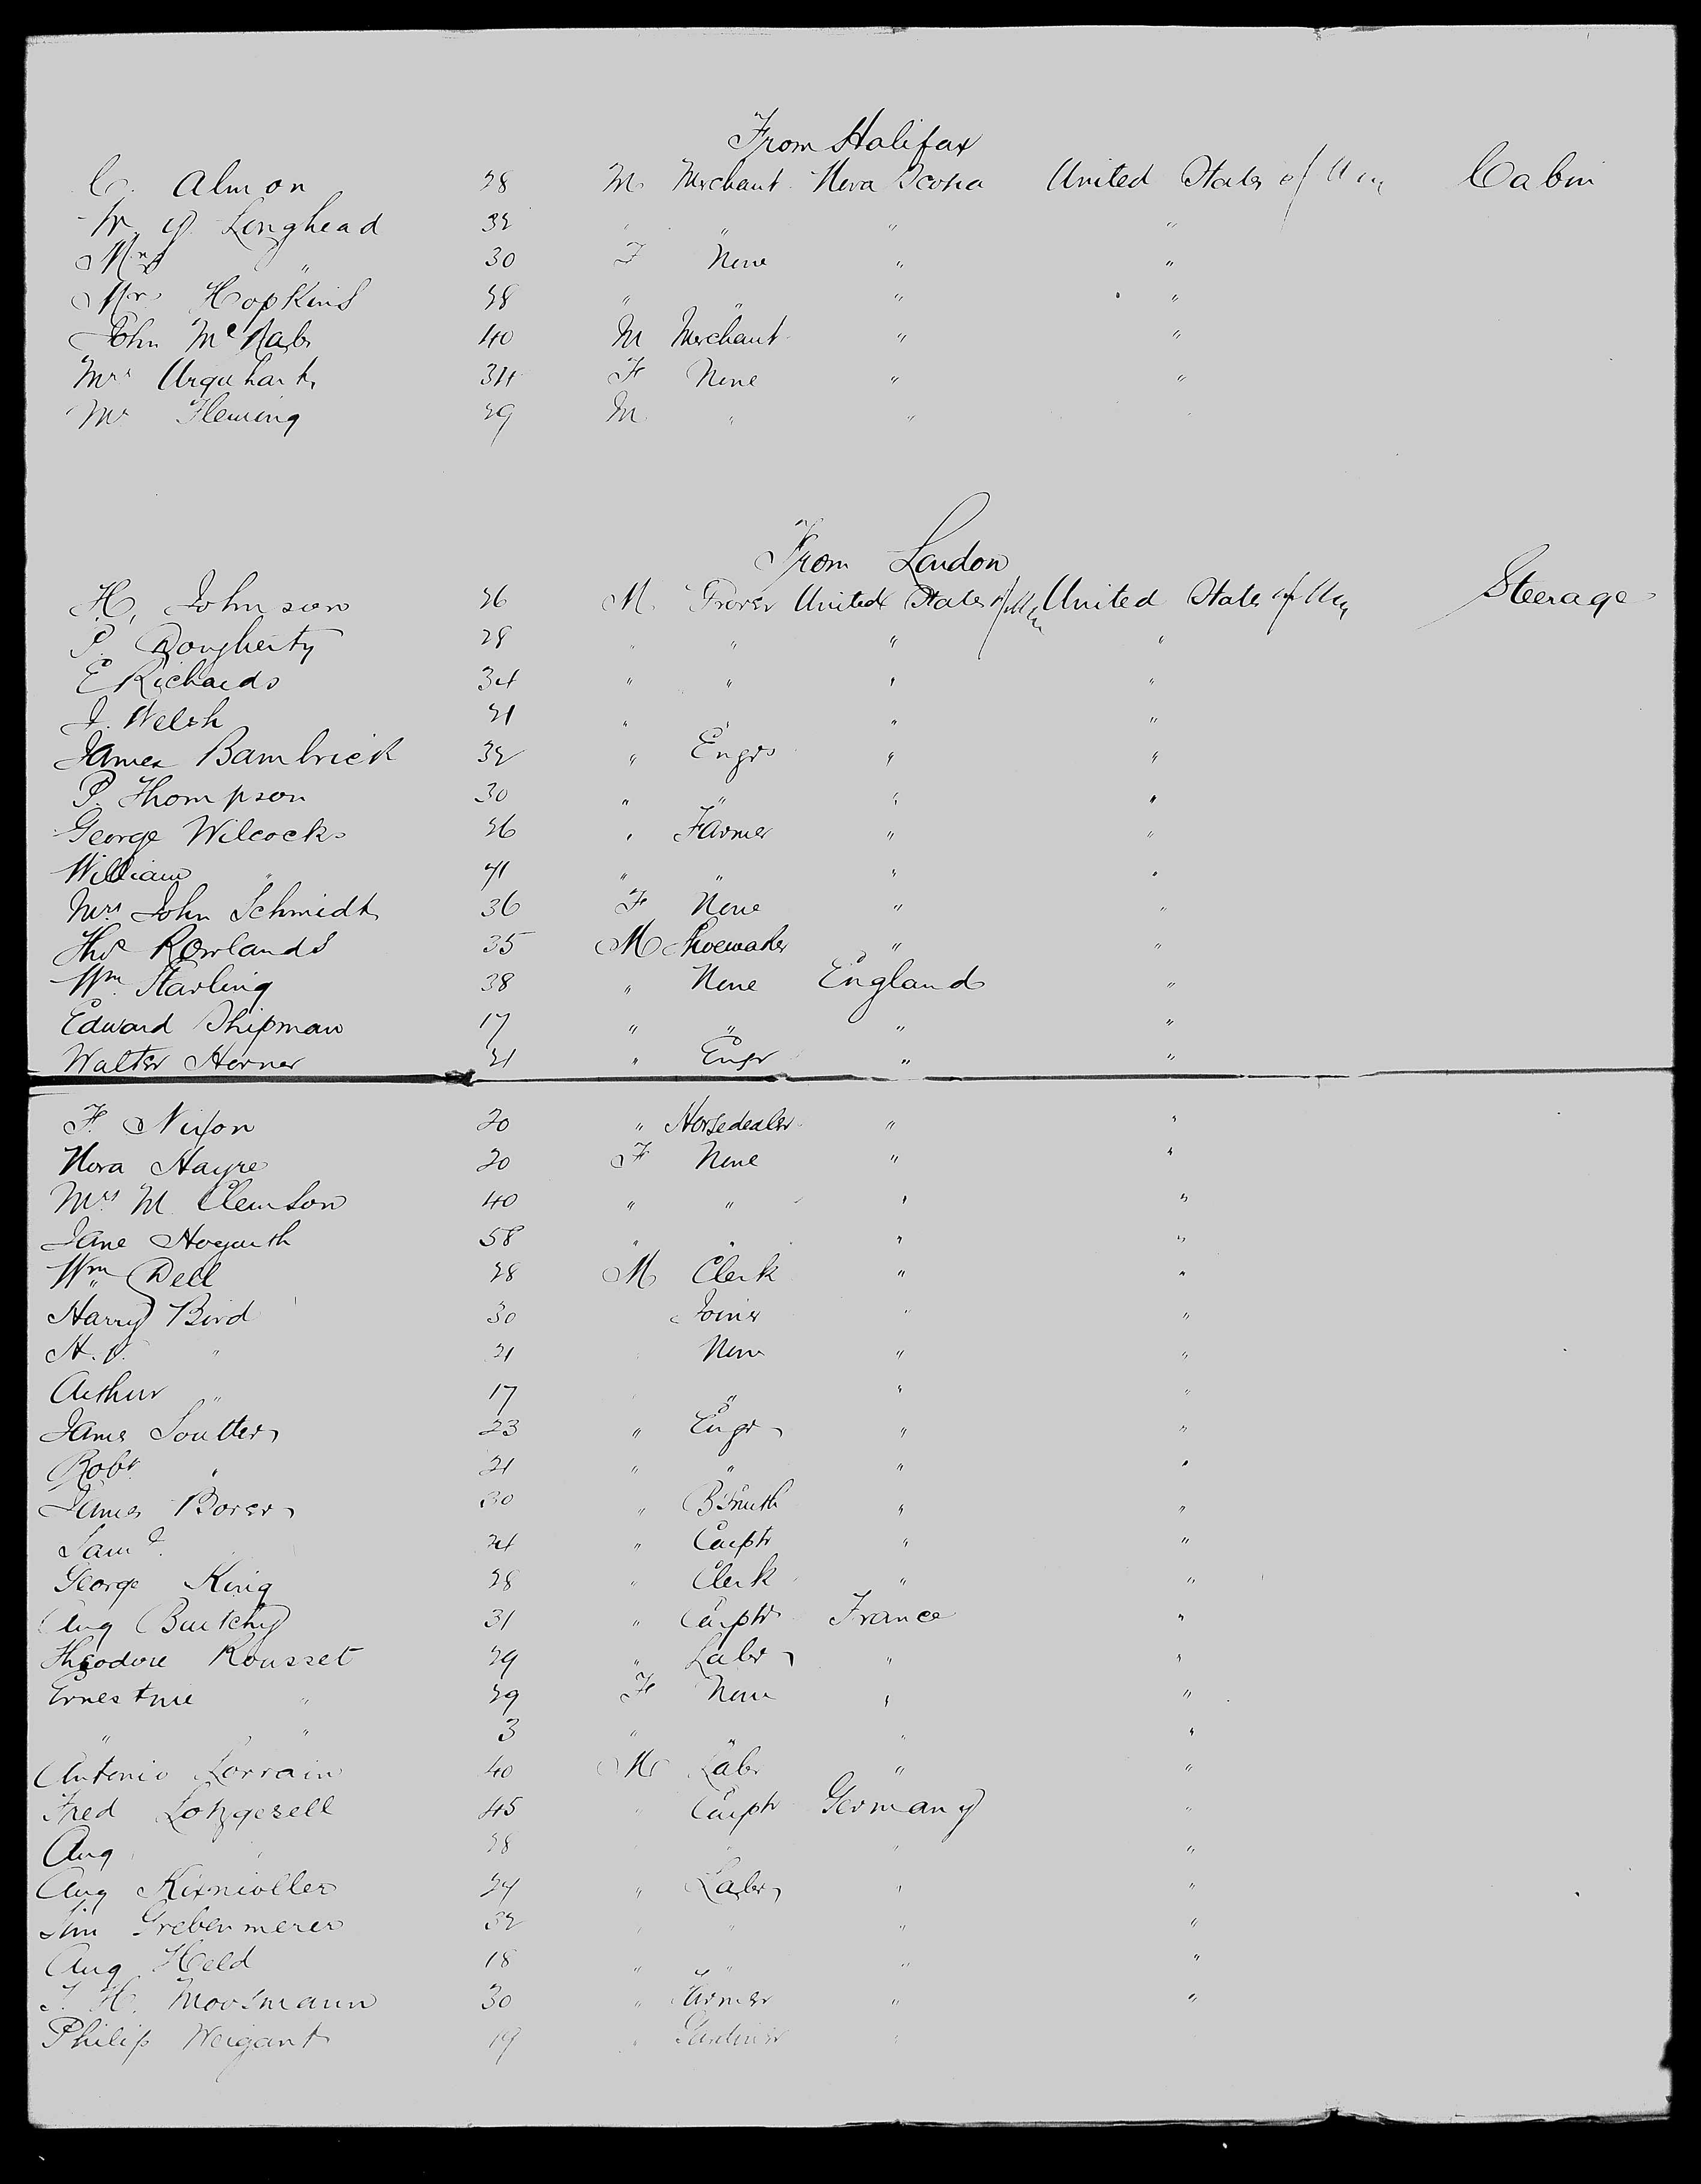 From Halifax
C. Almon 28 M Merchant Nova Scotia United States of Am Cabin
W. Longhead 32 " " " "
Mrs " 30 F None " "
Mrs Hopkins 28 " " " "
John McNab 40 M Merchant " "
Mrs Urquhart 34 F None " "
Mr Fleming 29 M " "
From London
H. Johnson 26 M Grocer United States of Am United States of Am Steerage
P. Dougherty 28 " " " "
E Richards 34 " " " "
J. Welsh 21 " " " "
James Bambrick 32 " Engr " "
P. Thompson 30 " " " "
George Wilcocks 26 " Farmer " "
William " 21 " " " "
Mrs John Schmidt 36 F None " "
Thos Rowlands 35 M Shoemaker " "
Wm Starling 38 " None England "
Edward Shipman 17 " " " "
Walter Horner 21 " Engr " "
F. Nixon 20 " Horsedealer " "
Nora Hayre 20 F None " "
Mrs M. Clemson 40 " " " "
Jane Hogarth 58 " " " "
Wm Dell 28 M Clerk " "
Harry Bird 30 Joiner " "
H. V. " 21 None " "
Arthur " 17 " " "
James Soutter 23 " Engr " "
Robt " 21 " " " "
James Borer 30 " BSmith " "
Saml 24 " Carptr " "
George King 28 " Clerk " "
Aug Butchy 31 " Carptr France "
Theodore Rousset 29 " Labr " "
Ernestine " 29 F None " "
" " 3 " " " "
Antonio Lorrain 40 M Labr " "
Fred Lotzgesell 45 " Carptr Germany "
Aug " 28 " " "
Aug 24 " Labr " "
Grebenmerer 32 " " " "
Aug Held 18 " " " "
J. H. Moosmann 30 " Farmer " "
Philip Weigant 19 " Gardiner "